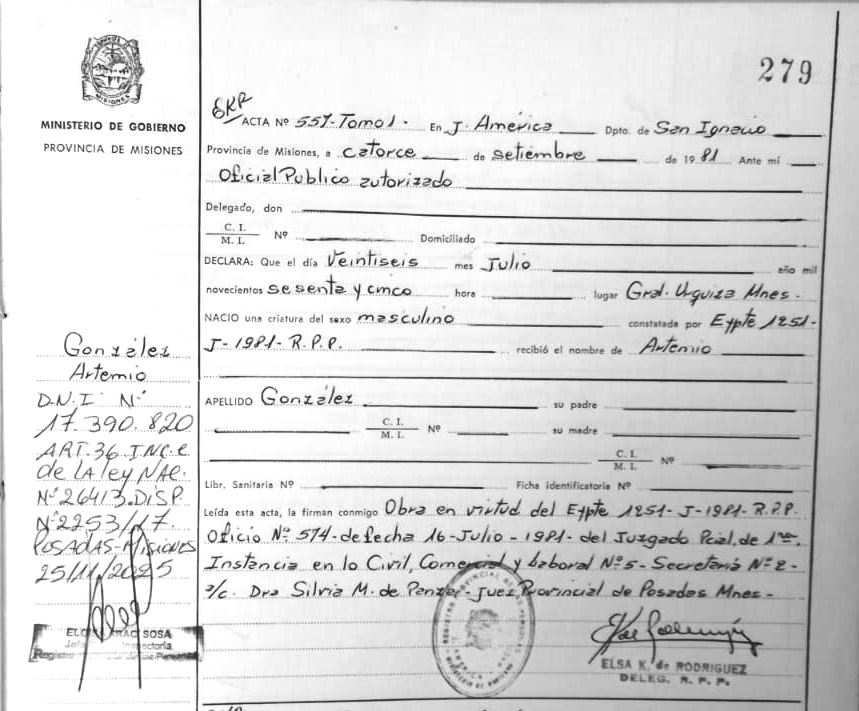 279
MISIONES
MINISTERIO DE GOBIERNO
PROVINCIA DE MISIONES
ACTA Nº 557-Tomo 1- En J. América Dpto. de San Ignacio
Provincia de Misiones, a catorce de setiembre de 19 81 Ante mi
Oficial Publico autorizado
Delegado, don
C. I.
M. I. Nº Domiciliado
DECLARA: Que el día Veintiseis mes Julio año mil
novecientos sesenta y cinco hora lugar Gral. Urquiza Mnes-
NACIO una criatura del sexo masculino constatada por Expte 1251-
J-1981-R.P.P. recibió el nombre de Artemio
APELLIDO González su padre
C. I.
M. I. Nº su madre
C. I.
M. I. Nº
Libr. Sanitaria Nº Ficha identificatoria Nº
Leída esta acta, la firman conmigo Obra en virtud del Expte 1251-J-1981-R.P.P.
Oficio Nº 574-de fecha 16-Julio-1981-del Juzgado Pcial. de 1ra.
Instancia en lo Civil, Comercial y Laboral Nº5-Secretaria Nº2-
a/c. Dra Silvia M. de -Juez Provincial de Posadas Mnes-
González
Artemio
D.N.I Nº
17.390.820
ART.36 INC.c
de LA ley NAC.
Nº26413.DISP.
Nº2253/17.
POSADAS-MISIONES
25/11/2025
SOSA
ELSA K. de RODRIGUEZ
DELEG. R. P. P.